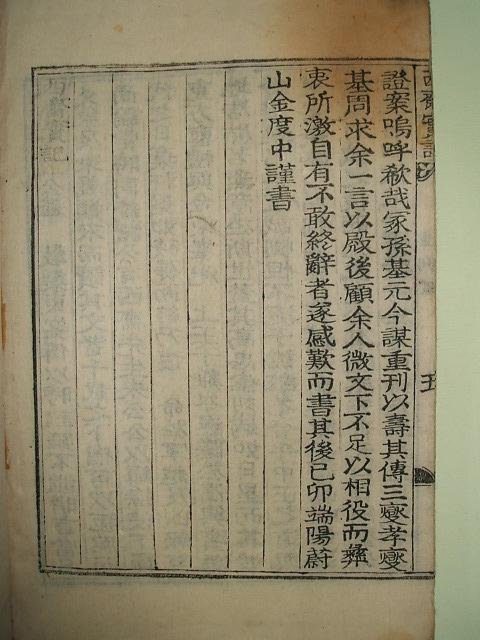 西齋實記
五
證案嗚呼欷哉冢孫基元今謀重刊以壽其傳三燮孝燮
基周求余一言以殿後顧余人微文下不足以相役而彝
衷所激自有不敢終辭者遂感歎而書其後己卯端陽蔚
山金度中謹書